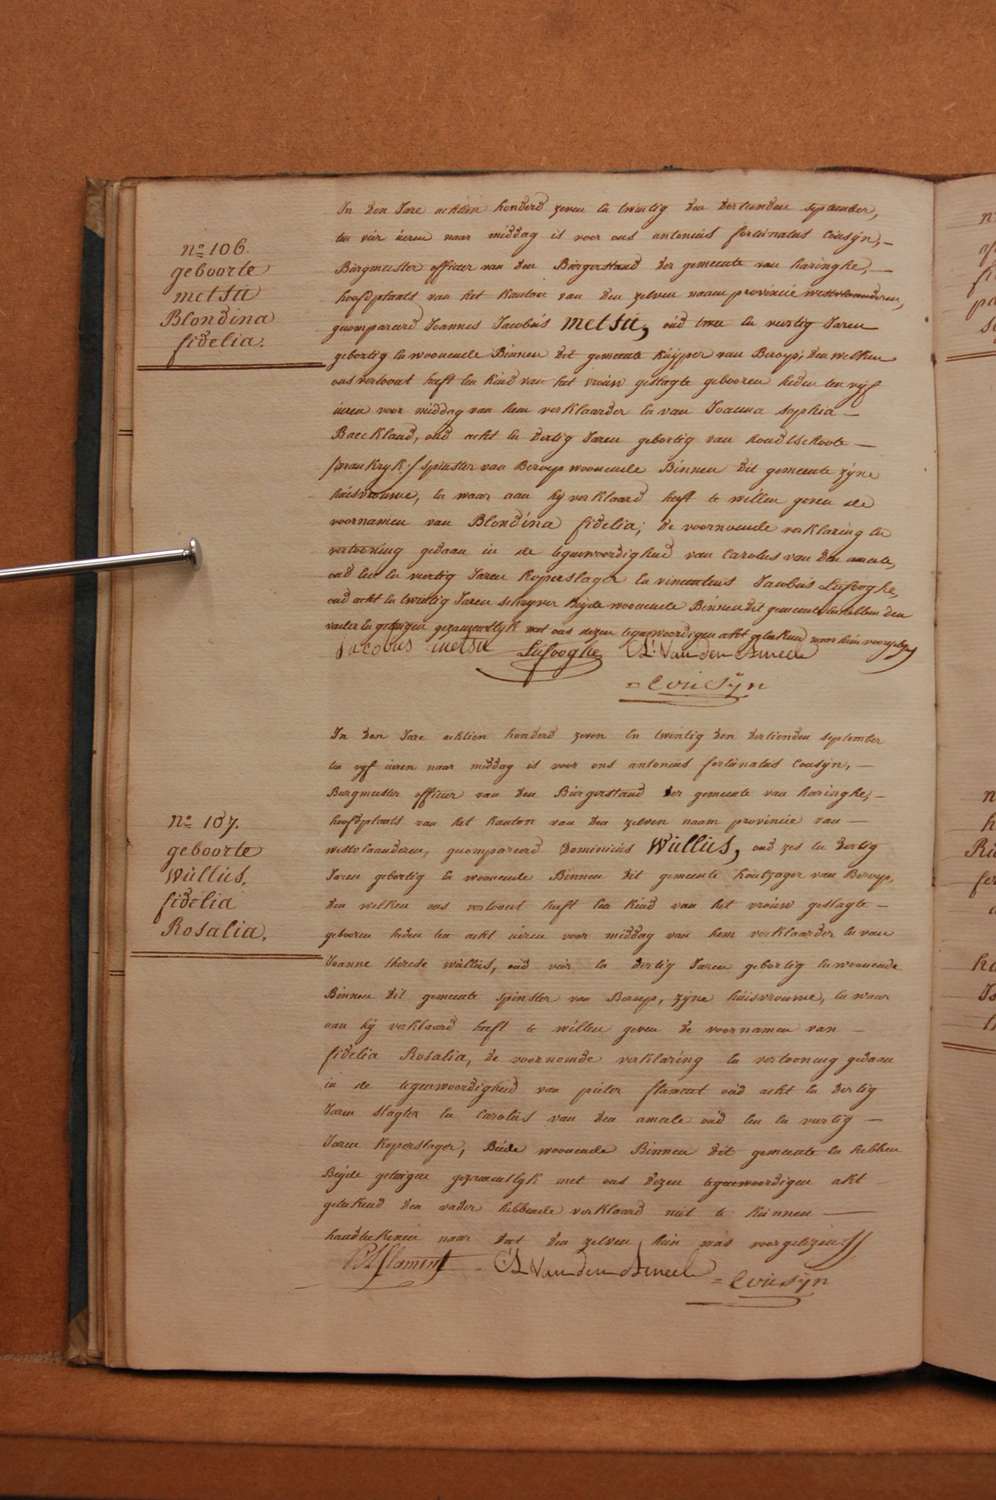 n° 106.
geboorte
metsu
Blondina
fidelia.
In den Jare achtien honderd zeven en twintig den dertienden september,
ten vier uren naar middag is voor ons antonius fortunatus Cousÿn,
Burgmeester officier van den Burgerstand der gemeente van haringhe,
hoofdplaats van het kanton van den zelven naam provincie westvlaanderen,
gecompareerd Joannes Jacobus metsu, oud twee en veertig Jaren
gebortig en woonende Binnen dit gemeente kuÿper van Beroep, den welken
ons vertoont heeft een kind van het vrouw geslagte gebooren heden ten vÿf
uren voor middag van hem verklaarder en van Joanna sophia
Baeckland, oud acht en dertig Jaren gebortig van hondschoote
frankryk / spinster van Beroep woonende Binnen dit gemeente zÿne
huisvrouwe, en waar aan hÿ verklaard heeft te willen geven de
voornamen van Blondina fidelia; de voornoemde verklaring en
vertooning gedaan in de tegenwoordigheid van Carolus van den ameele,
oud een en veertig Jaren koperslager en vincentius Jacobus Lefooghe,
oud acht en twintig Jaren schryver Beÿde woonende Binnen dit gemeente en hebben den
vader en getuigen gezamentlÿk met ons dezen tegenwoordigen akt geteekend naar hun voorgelezen
Jacobus metsu Lefooghe C L Van den Ameele
= Cousÿn
n° 107.
geboorte
Wullus,
fidelia
Rosalia.
In den Jare achtien honderd zeven en twintig den dertienden september
ten vÿf uren naar middag is voor ons antonius fortunatus Cousÿn,
Burgmeester officier van den Burgerstand der gemeente van haringhe,
hoofdplaats van het kanton van den zelven naam provincie van
westvlaanderen, gecompareerd Dominicus Wullus, oud zes en dertig
Jaren gebortig en woonende Binnen dit gemeente houtzager van Beroep,
den welken ons vertoont heeft een kind van het vrouw geslagte
gebooren heden ten acht uren voor middag van hem verklaarder en van
Joanne therese wullus, oud vier en dertig Jaren gebortig en woonende
Binnen dit gemeente spinster van Beroep, zÿne huisvrouwe, en waar
aan hÿ verklaard heeft te willen geven de voornamen van
fidelia Rosalia, de voornoemde verklaring en vertooning gedaan
in de tegenwoordigheid van pieter flament oud acht en dertig
Jaren slagter en Carolus van den ameele oud een en veertig
Jaren koperslager, Beide woonende Binnen dit gemeente en hebben
Beÿde getuigen gezamentlÿk met ons dezen tegenwoordigen akt
geteekend den vader hebbende verklaard niet te kunnen
handteekenen naar dat den zelven hun was voorgelezen
P L flament C L Van den Ameele = Cousÿn